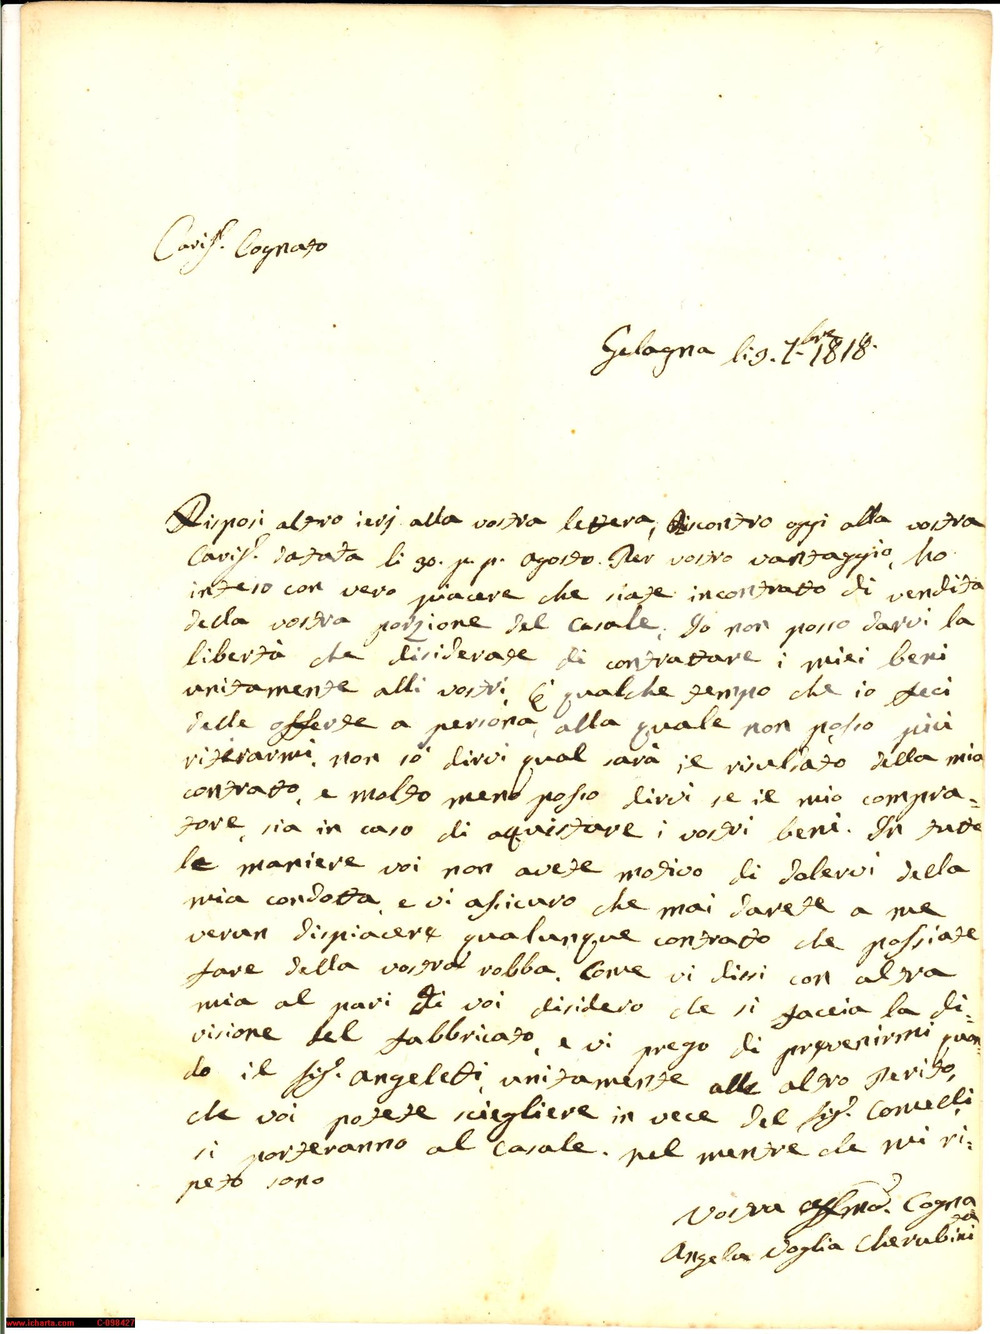 Cariss. Cognato
Gelagna li 9. 7.bre 1818.
Risposi altro ierj alla vostra lettera, Riscontro oggi alla vostra
Cariss. datata li 30. p. p. Agosto. Per vostro vantaggio, ho
inteso con vero piacere che siate incontrato di vendita
della vostra porzione del Casale. Io non posso darvi la
libertà che disiderate di contrattare i miei beni
unitamente alli vostri. È qualche tempo che io feci
delle offerte a persona, alla quale non posso più
ritirarmi, non sò dirvi qual sarà il risultato della mia
contrato, e molto meno posso dirvi se il mio compra=
tore, sia in caso di aquistare i vostri beni. In tutte
le maniere voi non avete motivo di dolervi della
mia condotta, e vi assicuro che mai darete a me
verun dispiacere qualunque contrato che possiate
fare della vostra robba. Come vi dissi con altra
mia al pari di voi disidero che si faccia la di=
visione del fabbricato, e vi prego di prevenirmi quan=
do il Sig. Angeletti, unitamente alle altro Perito,
che voi potete sciegliere in vece del Sig. Concelli,
si porteranno al Casale. nel mentre che mi ri=
peto sono
Vostra affma. Cogna
ta
Angela Voglia Cherubini
www.icharta.com C-098427